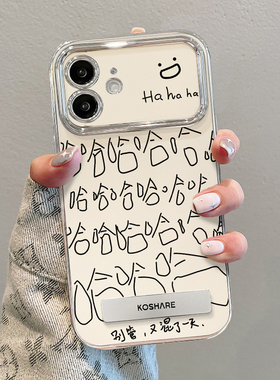 Ha ha ha
哈哈哈哈哈
哈哈哈哈哈
哈哈哈哈
KOSHARE
又混了一天.